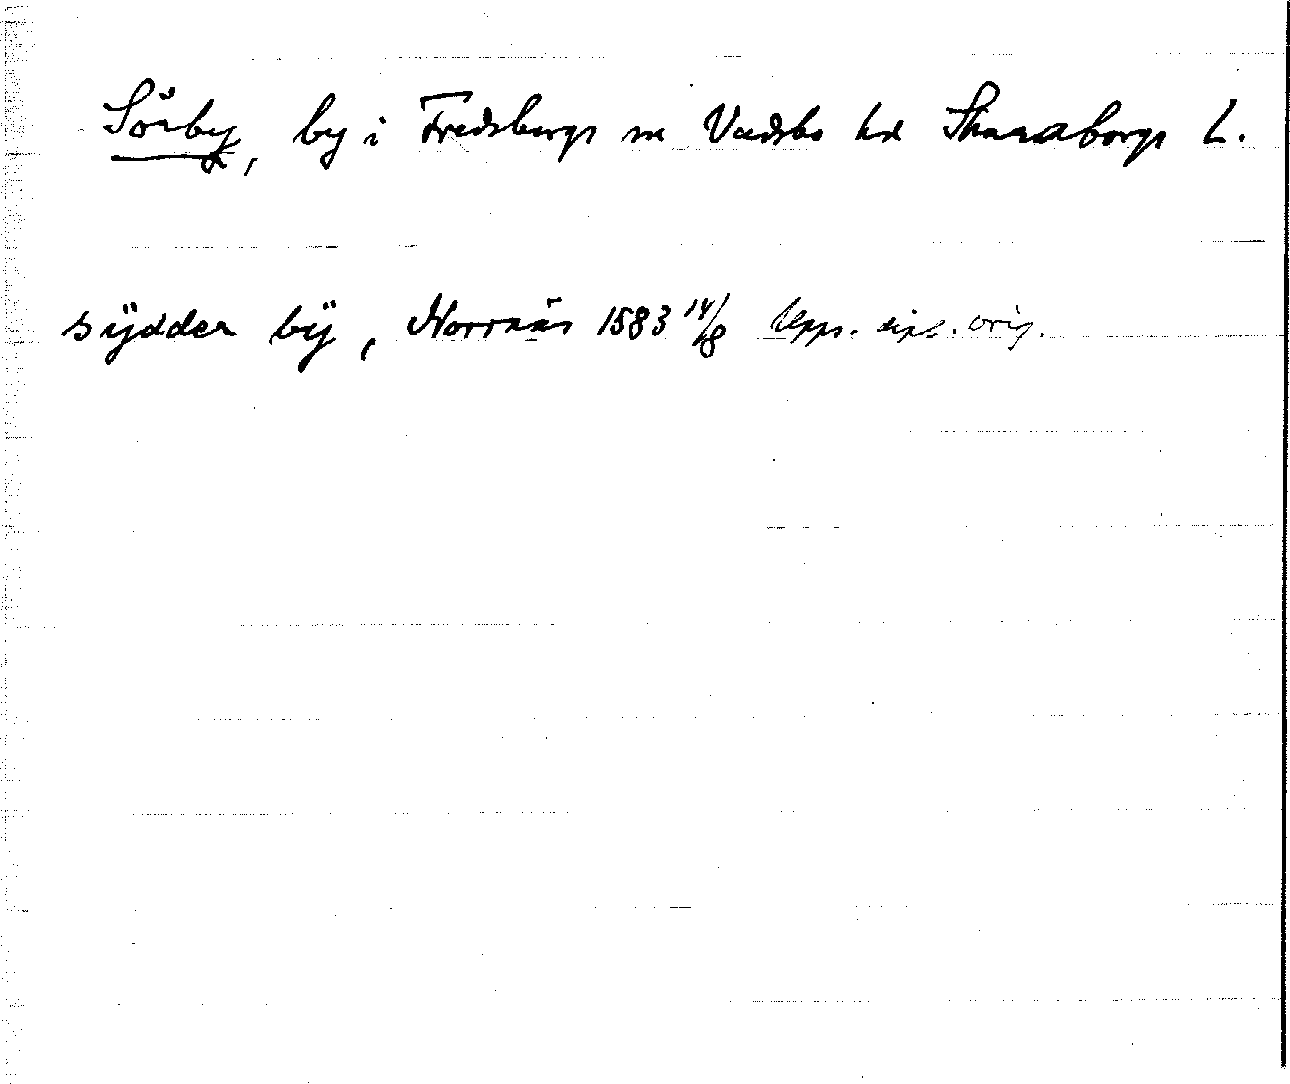 Sörby, by i Fredsbergs sn Vadsbo hd Skaraborgs L.
sÿdder bÿ, Norrnäs 1583 14/8 Upps. dipl. orig.